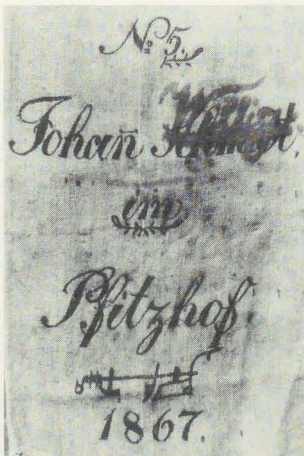 No 5.
Johan̄
im
Pfitzhof.
1867.